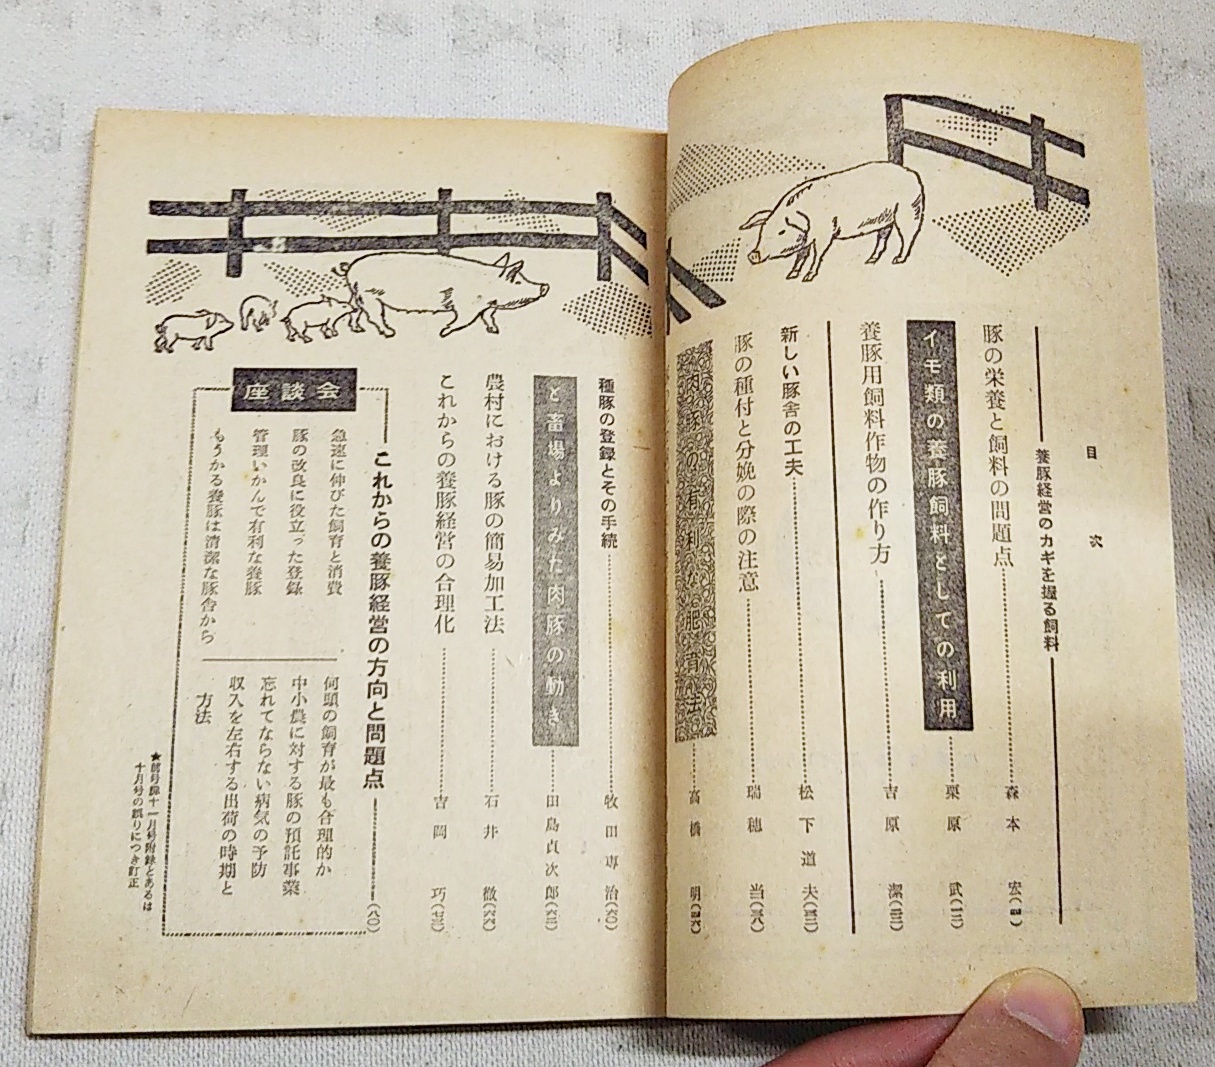 目次
養豚経営のカギを握る飼料
豚の栄養と飼料の問題点 森本 宏
イモ類の養豚飼料としての利用 栗原 武(一二)
養豚用飼料作物の作り方 吉原 潔
新しい豚舎の工夫 松下道夫
豚の種付と分娩の際の注意 瑞穂 当(三八)
肉豚の有利な肥育法 高橋 明(四六)
種豚の登録とその手続 牧田専治(六〇)
と畜場よりみた肉豚の動き 田島貞次郎(六二)
農村における豚の簡易加工法 石井 徹(六六)
これからの養豚経営の合理化 吉岡 巧(七三)
座談会
これからの養豚経営の方向と問題点 (八〇)
急速に伸びた飼育と消費
豚の改良に役立った登録
管理いかんで有利な養豚
もうかる養豚は清潔な豚舎から
何頭の飼育が最も合理的か
中小農に対する豚の預託事業
忘れてならない病気の予防
収入を左右する出荷の時期と
方法
★前号歴十一月号附録とあるは
十月号の誤りにつき訂正